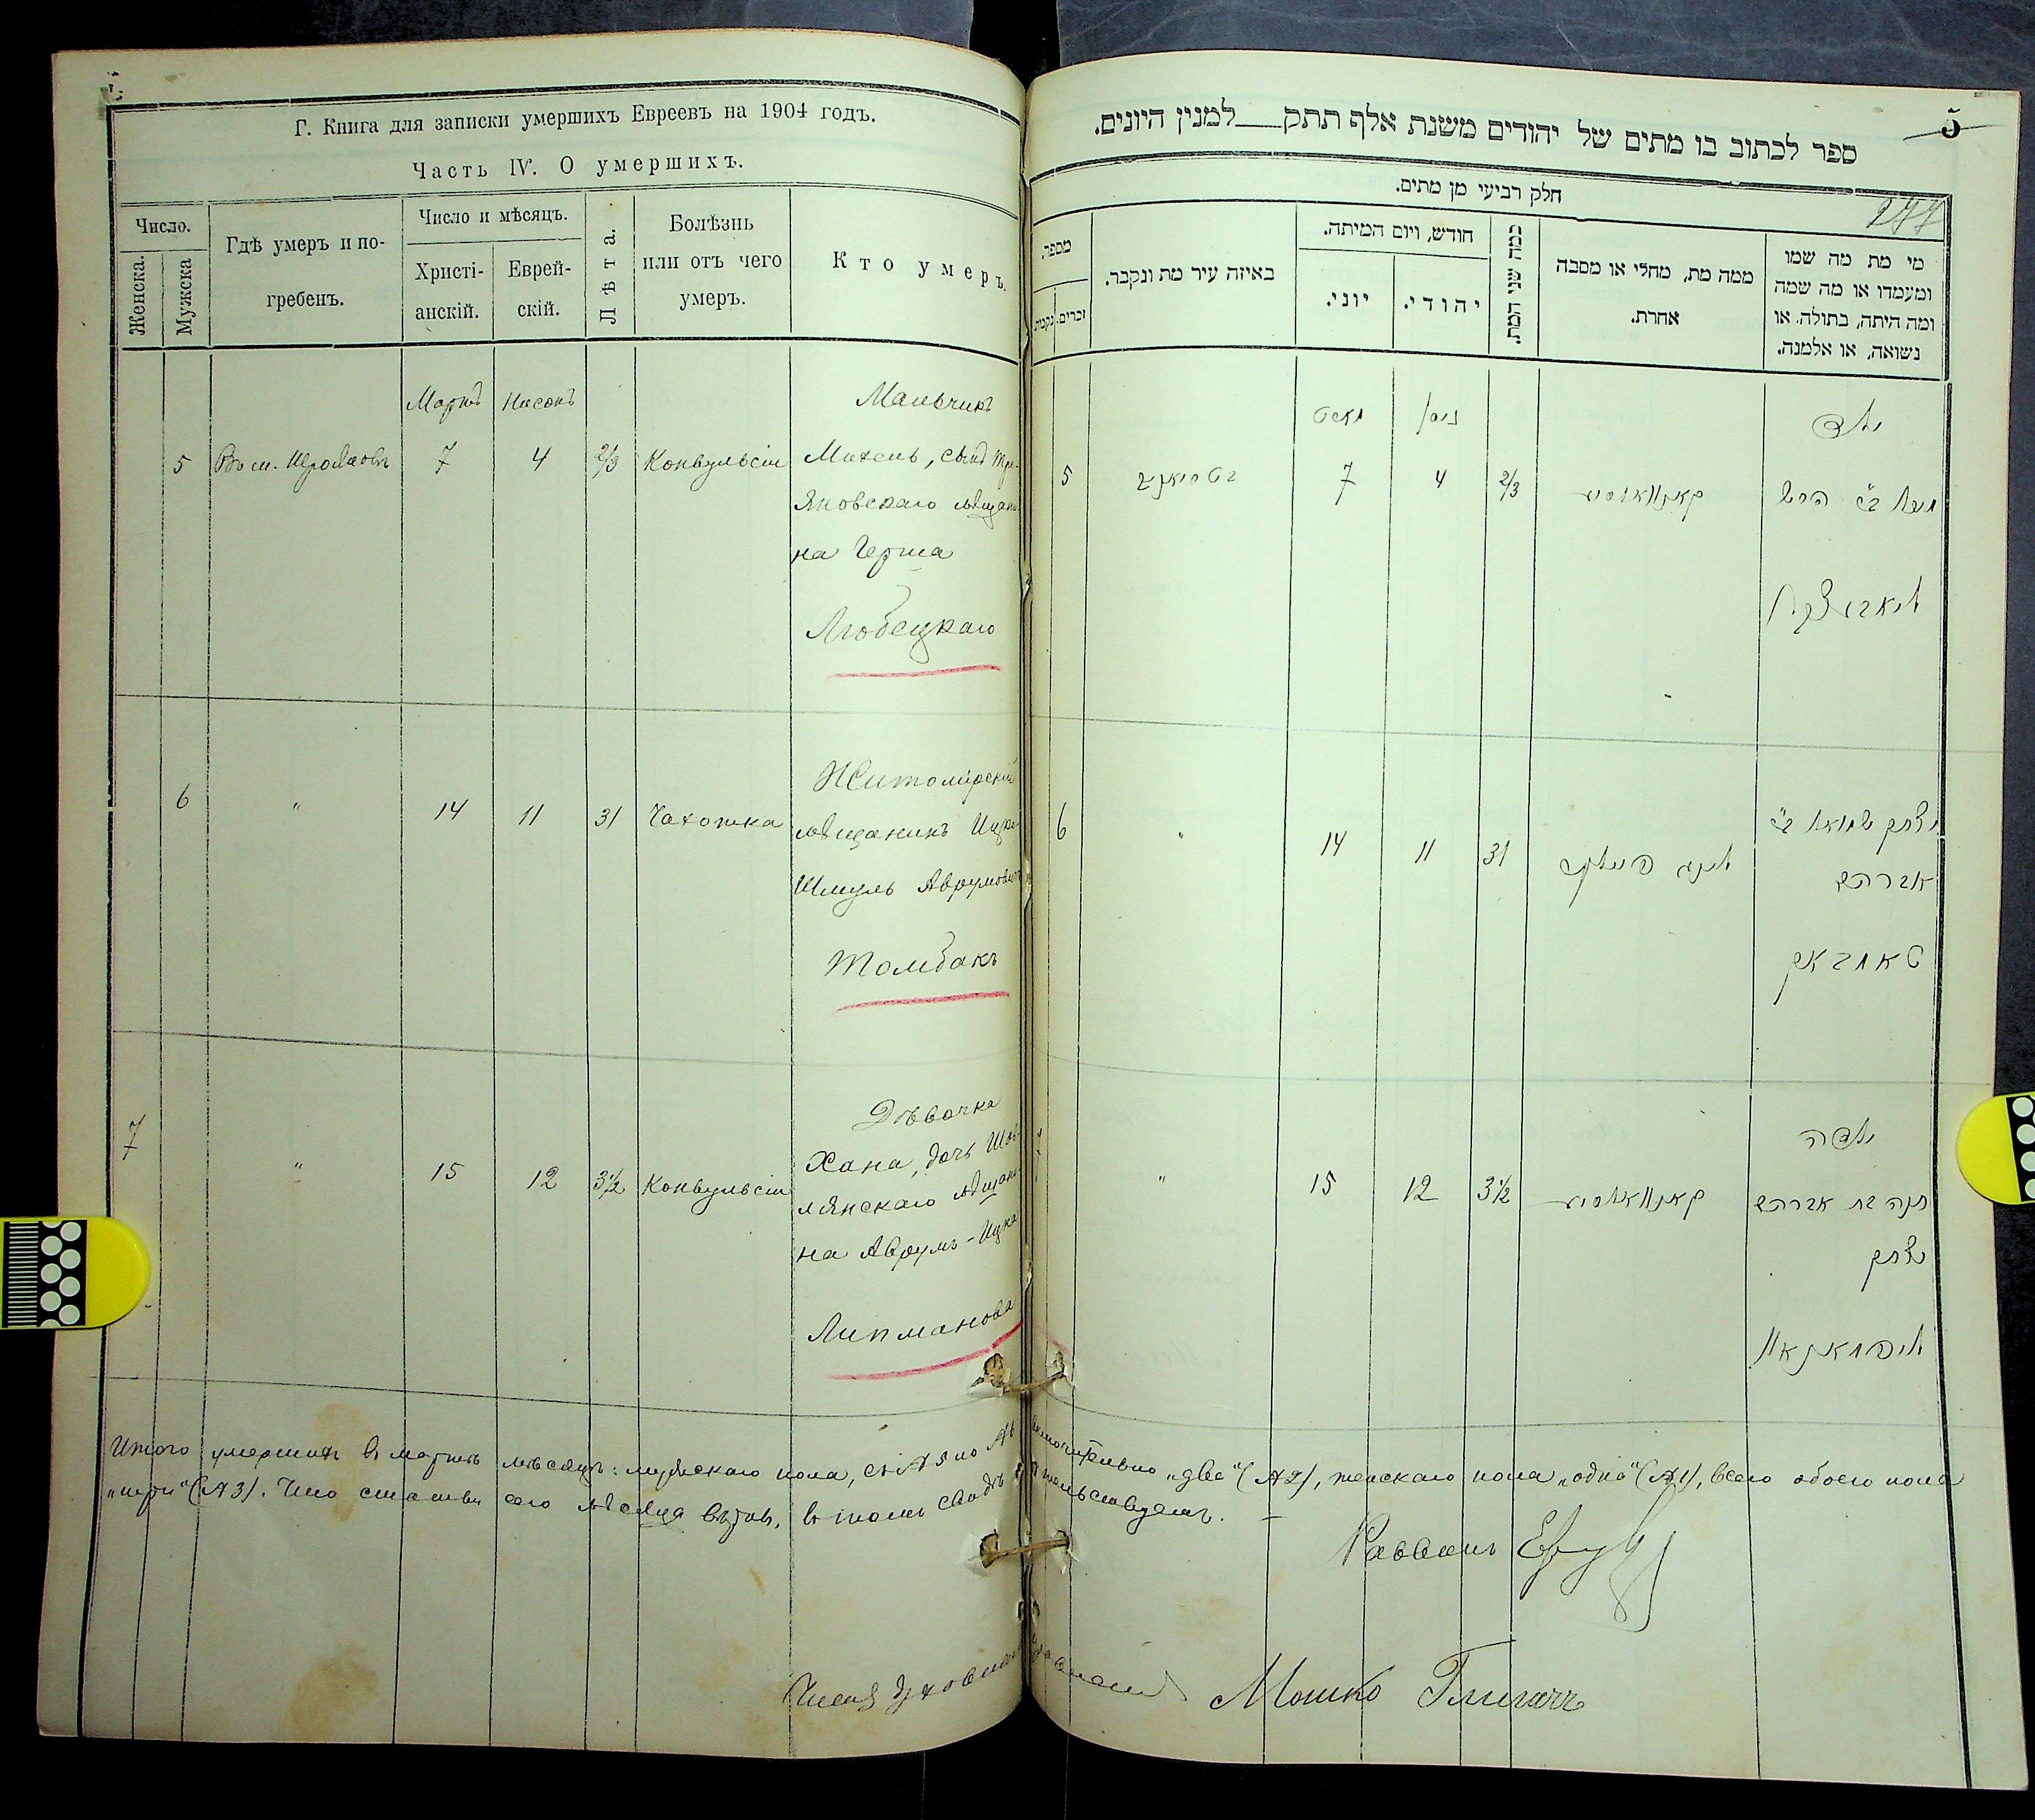 Г. Книга для записки умершихъ Евреевъ на 1904 годъ.
Часть IV. О умершихъ.
Число.
Женска.
Мужска
Гдѣ умеръ и по-
гребенъ.
Число и мѣсяцъ.
Христі-
анскій.
Еврей-
скій.
Лѣта.
Болѣзнь
или отъ чего
умеръ.
Кто умеръ.
Мартъ Нисонъ
5 7 4 2/3 Конвульсіи
Мальчикъ
Михель, сынъ
яновскаго мѣщани
на Герша
Любецкаго
6 " 14 11 31 Чахотка
Житомірскій
мѣщанинъ Ицко
Шмуль Аврумовичъ
Томбакъ
7 " 15 12 3½ Конвульсіи
Дѣвочка
Хана, дочь
лянскаго мѣщани
на Аврумъ-Ицка
Липманова
ספר לכתוב בו מתים של יהודים משנת אלף תתק___למנין היונים.
5
חלק רביעי מן מתים.
277
מספר.
זכרים.
נקבות
באיזה עיר מת ונקבר.
חודש, ויום המיתה.
יוני.
יהודי.
כמה שני המת.
ממה מת, מחלי או מסבה
אחרת.
מי מת מה שמו
ומעמדו או מה שמה
ומה היתה, בתולה, או
נשואה, או אלמנה.
מארט ניסן
ילד
5 7 4 2/3 קאנוואולסיע
מיכל ב״ הירש
ליאבעצקי
6 " 14 11 31
יצחק שמואל ב״
אברהם
טאמבאק
7 " 15 12 3½ קאנוואולסיע
ילדה
חנה בת אברהם
יצחק
ליפמאנאוו
Итого умершихъ въ мартѣ мѣсяцѣ: мужескаго пола, съ №5 по №6 включительно „два“ (№2), женскаго пола „одна“ (№1), всего обоего пола
„три“ (№3). Что статьи сего мѣсяца вѣрны, въ томъ свидѣтельствуемъ.
Раввинъ
Членъ духовнаго правленія Мошко